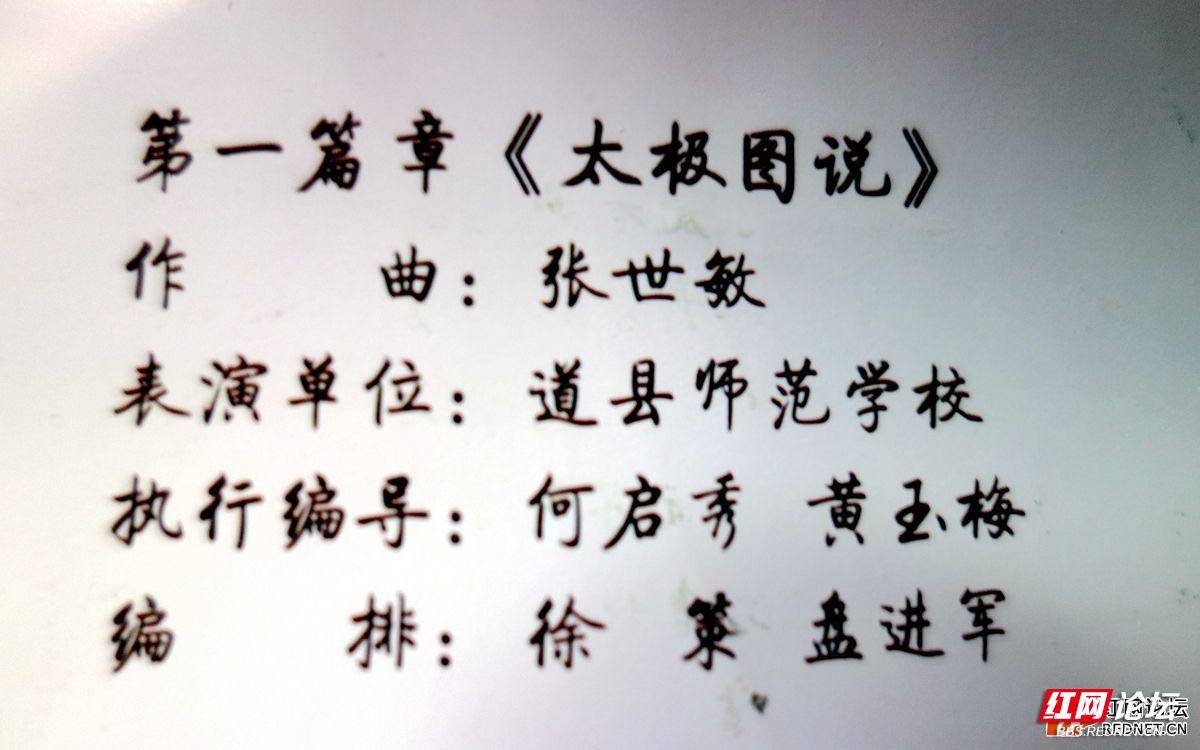 第一篇章《太极图说》
作 曲：张世敏
表演单位：道县师范学校
执行编导：何启秀 黄玉梅
编 排：徐 策 盘进军
红网论坛
REDNET.CN